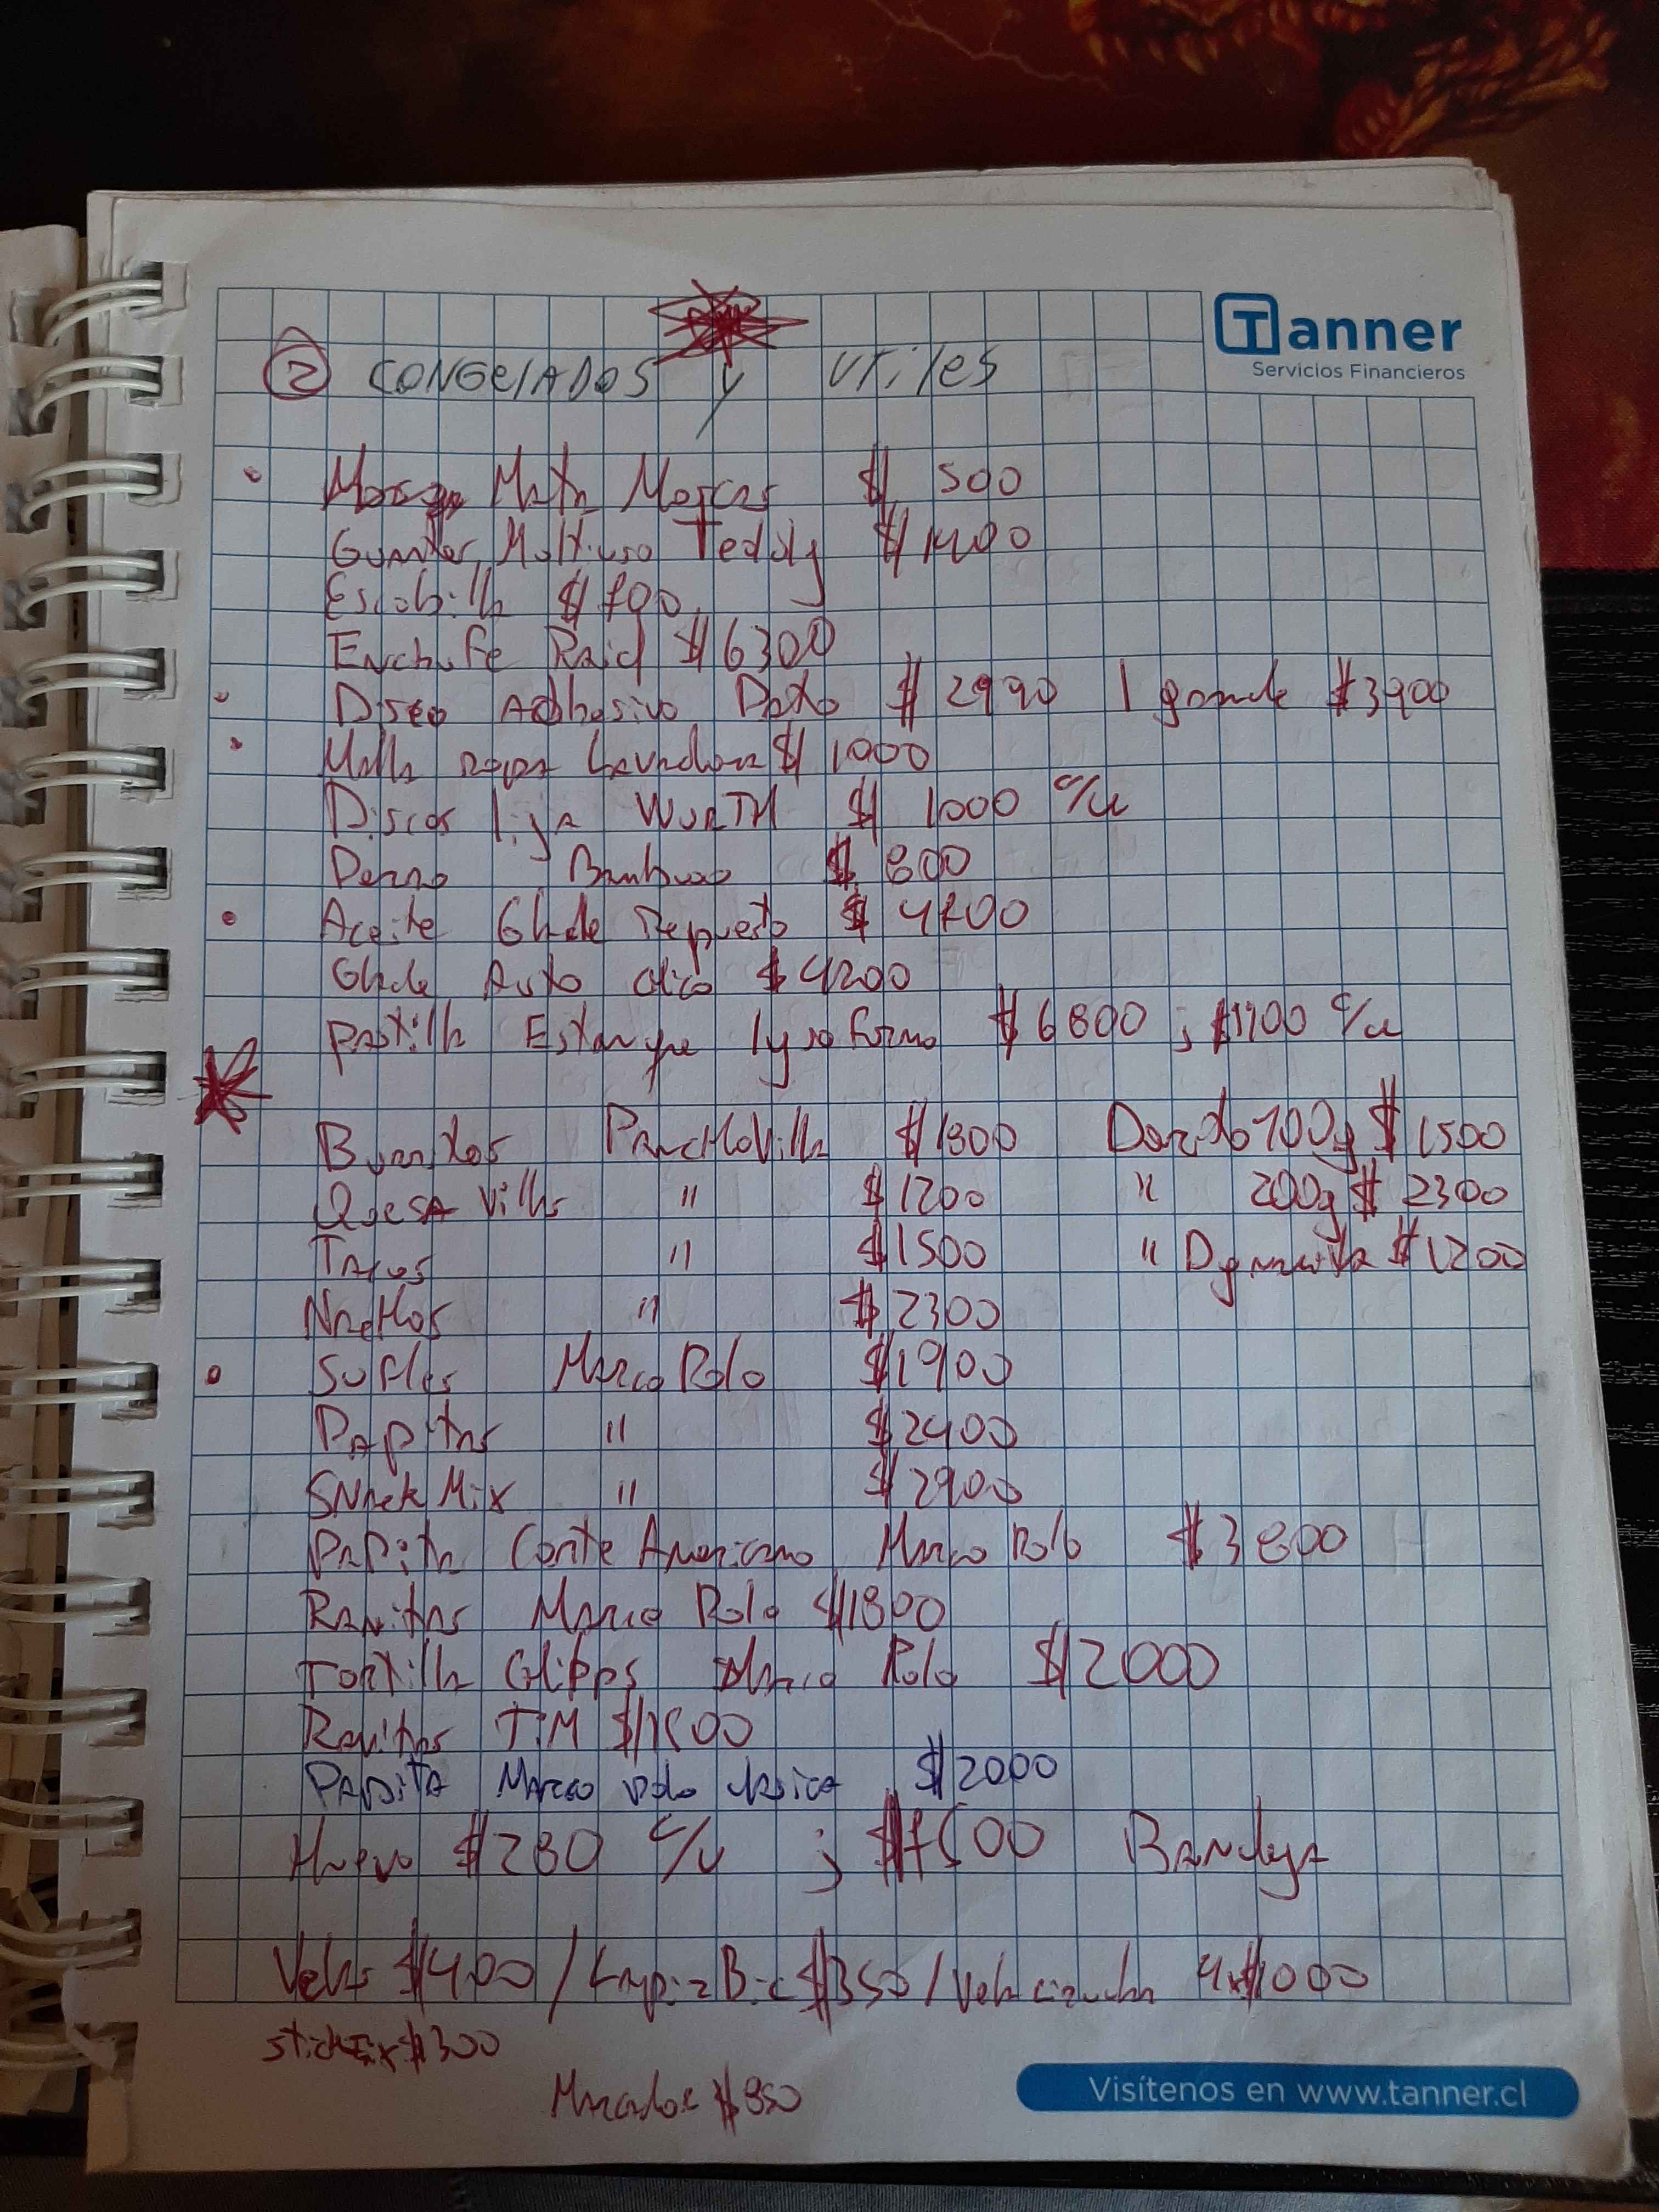 Tanner
Servicios Financieros
② CONGELADOS y utiles
Mata Moscas $ 500
Guantes Multiuso Teddy $1400
Escobilla $700
Enchufe Raid $6300
Disco Adhesivo Pato $ 2990 1 grande $3900
Malla ropa Lavadora $ 1000
Discos lija WURTH $ 1000 c/u
Perro Bambuo $ 800
Aceite Glade Repuesto $ 4700
Glade Auto olico $ 4200
Pastilla Estanque lysoform $ 6800 ; $1700 c/u
Burritos PANCHOVilla $1800 Dorito 100g $ 1500
QuesA Villas " $1200 " 200g $ 2300
TAcos " $1500 " Dynamita $1200
NACHOS " $2300
Sufles Marco Polo $1900
PApitas " $2400
SNACK Mix " $2900
PAPita Corte Americano Marco Polo $3800
RAmitas Marco Polo $1800
Tortilla CHipps Marco Polo $2000
Ramitas T.M $1500
PAPITA Marco Polo clasica $2000
Huevo $280 c/u ; $7500 BANdeja
Velas $400 / Lapiz Bic $350 / Vela ciruela 4x$1000
stickFix $300
Marcador $850
Visítenos en www.tanner.cl